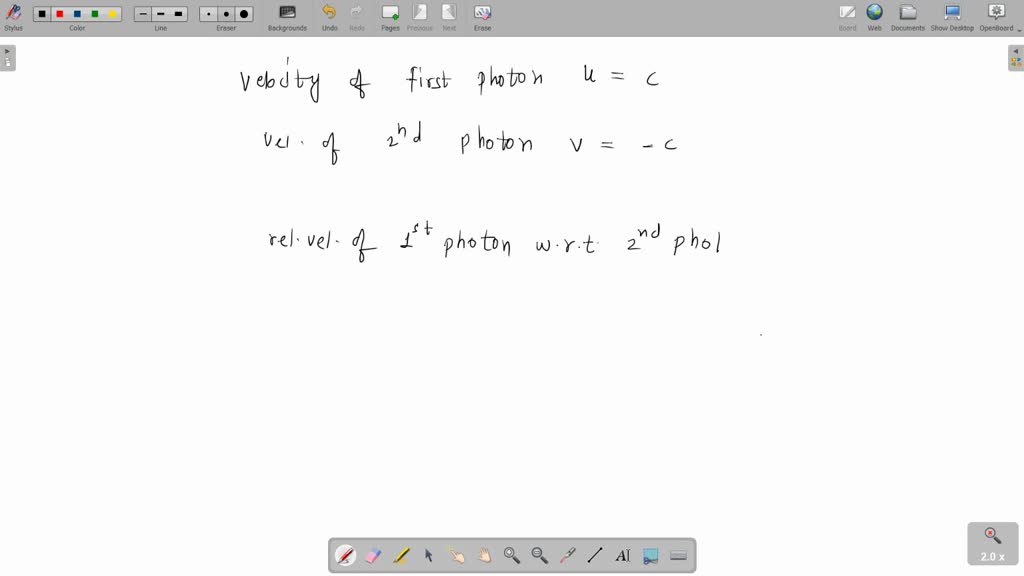 Stylus
Color
Line
Eraser
Backgrounds
Undo
Redo
Pages
Previous
Next
Erase
Board
Web
Documents
Show Desktop
OpenBoard
velocity of first photon u = c
vel. of 2nd photon v = - c
rel. vel. of 1st photon w.r.t. 2nd phot
2.0 x